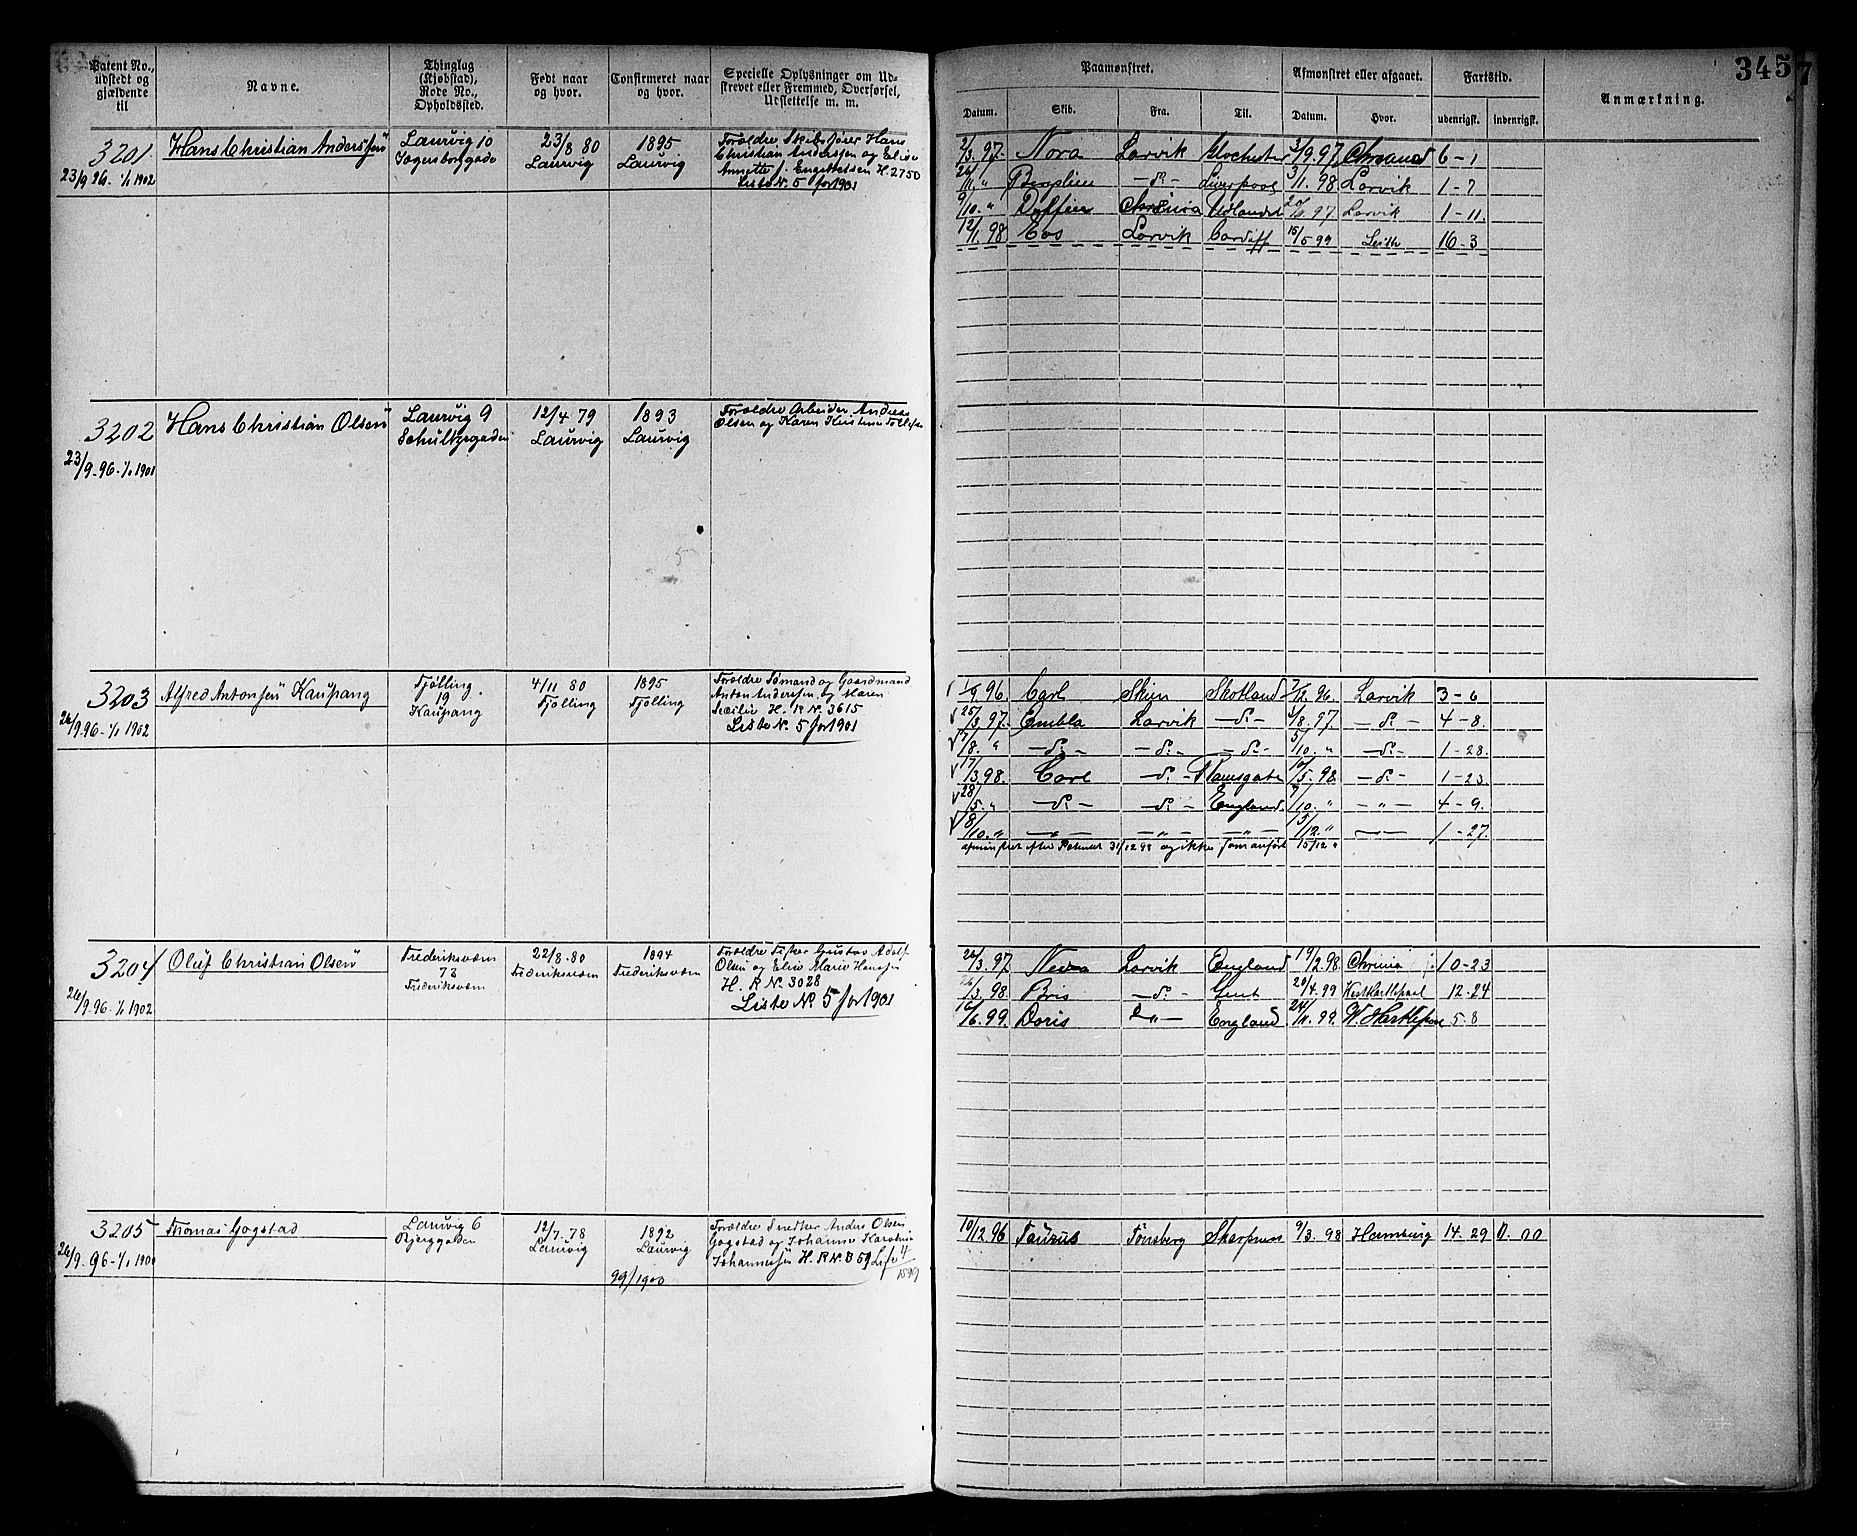 Patent No., udstedt og gjældende til
Navne.
Thinglag (Kjøbstad), Rode No., Opholdssted.
Født naar og hvor.
Confirmeret naar og hvor.
Specielle Oplysninger om Udskrevet eller Fremmed, Overførsel, Udslettelse m. m.
Paamønstret.
Afmønstret eller afgaaet.
Fartstid.
Anmærkning.
345
7
Datum.
Skib.
Fra.
Til.
Datum.
Hvor.
udenrigsk.
indenrigsk.
3201
23/9 96 - 1/1 1902
Hans Christian Anderssen
Laurvig 10
23/8 80
Laurvig
1895
Laurvig
Forældre Skibsfører Hans
Christian Anderssen og Elise
Annette f. Engebretsen H. 2750
Liste No. 5 for 1901
2/3 97. Nora Larvik Glochester 3/9 97 Chrsand 6 - 1
Larvik 1 - 7
Liverpool 3/1. 98
9/10. " Udlandet Larvik 1 - 11
12/1. 98 Eos Larvik Cardiff 15/5 99 Leith 16 - 3
3202
23/9 - 96 - 1/1 1901
Hans Christian Olsen
Laurvig 9
Schultzegaden
12/4 79
Laurvig
1893
Laurvig
Forældre Arbeider Andreas
Olsen og Karen Kirstine
3203
26/9 96 - 1/1 1902
Alfred Antonsen Kaupang
Tjølling
19
Kaupang
4/11 80
Tjølling
1895
Tjølling
Forældre Sømand og Gaardmand
Anton Anderssen og Maren
H. R No. 3615
Liste No. 5 for 1901
1/9 96. Carl Skien Skotland 7/12. 96. Larvik 3 - 6
25/3 97. Embla Larvik - do - 3/8. 97. - do - 4 - 8.
7/8. " - do - - do - - do - 5/10. " - do - 1 - 28.
17/3 98. Carl - do - Ramsgate 10/5. 98. - do - 1 - 23.
28/5. " - do - - do - England 7/10. " - " - 4 - 9.
8/10. " - " - - " - - " - 15/12. " 1 - 27.
31/12 98 og ikke som anført 15/12 "
3204
26/9. 96 - 1/1 1902
Oluf Christian Olsen
Frederiksværn
72
Frederiksværn
22/8 - 80
Frederiksværn
1894
Frederiksværn
Forældre Fisker Gustav Adolf
Olsen og Elise Marie Hansen
H. R No. 3028
Liste No 5 for 1901
26/3. 97 Larvik England 19/2. 98 Chrinia 10 - 23
26/3. 98. Bris - do - Gent 20/4. 99 Westhartlepool 12 - 24
16/6. 99. Doris - " - England 24/11. 99. W. Hartlepool 5 - 8
3205
26/9. 96 - 1/1 1900
Thomas Gogstad
Laurvig 6
Bjerggaden
12/7. 78
Laurvig
1892
Laurvig
99/1900
Forældre Snedker Anders Olsen
Gogstad og Johanne Karoline
Johannessen H. R No.
1899
10/12 96 Taurus Tønsberg 9/3. 98 Hamburg 14 - 29 0. 00